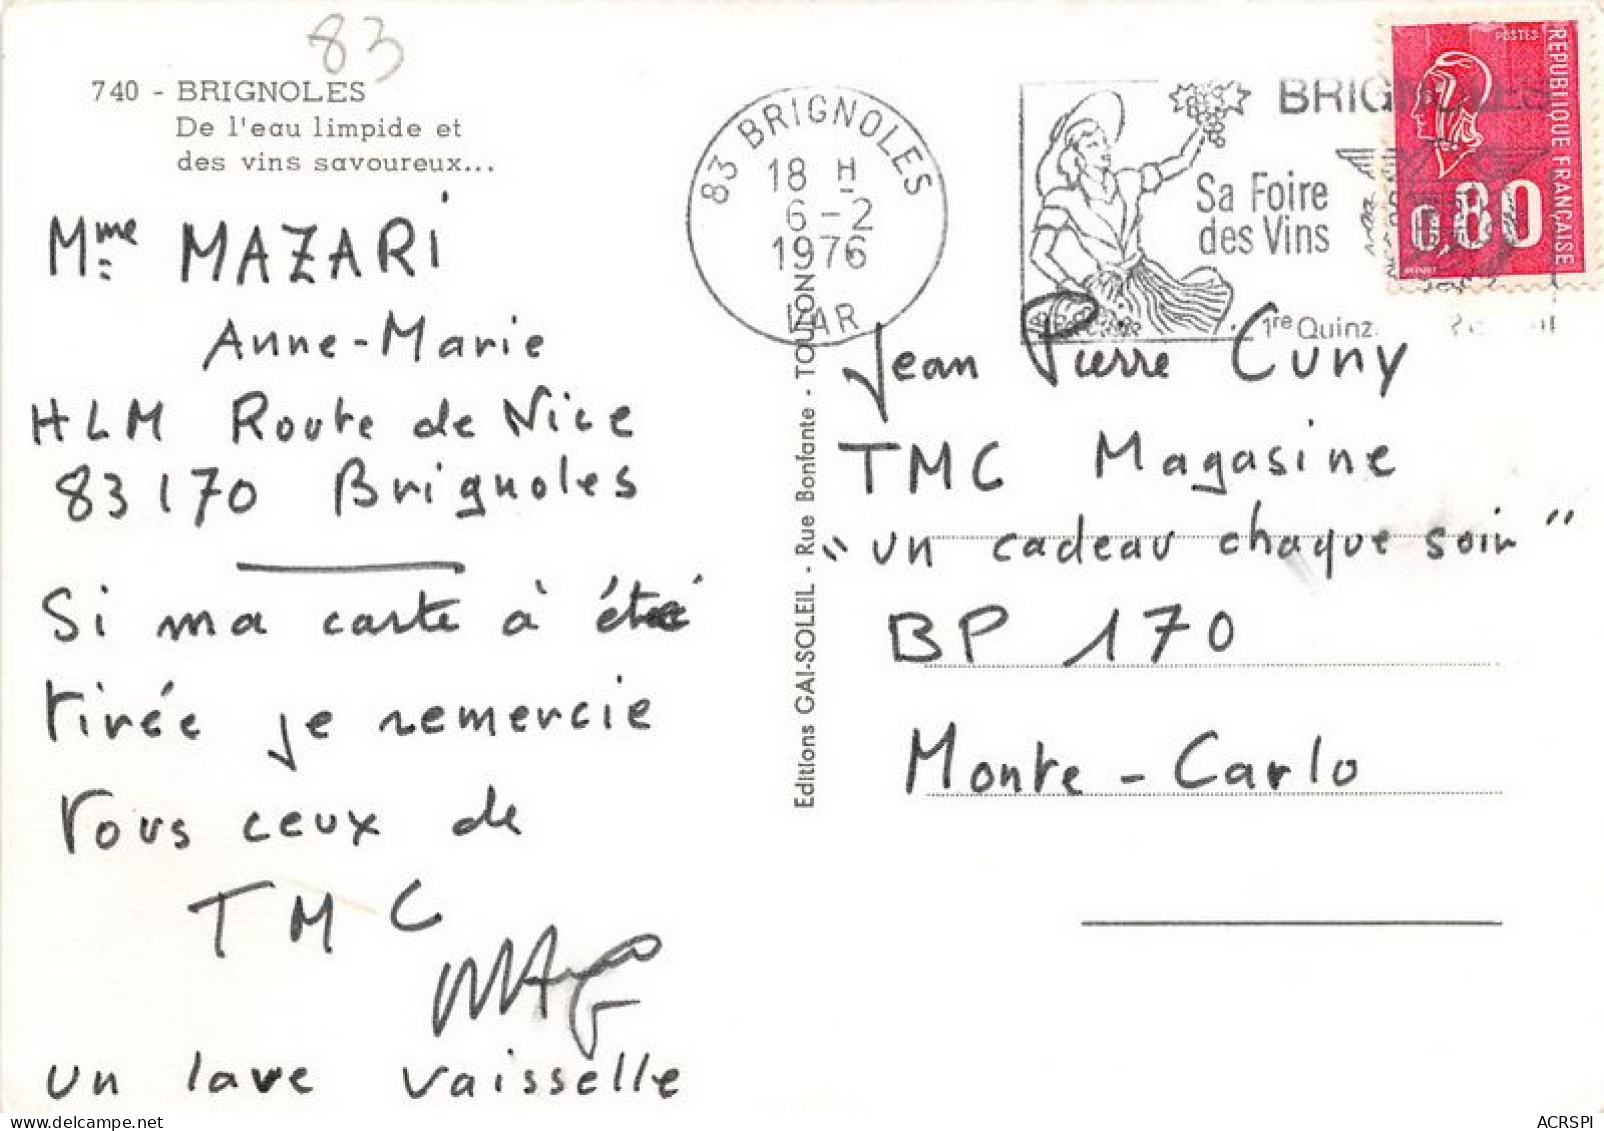 83
740 - BRIGNOLES
De l'eau limpide et
des vins savoureux...
Mme MAZARI
Anne-Marie
HLM Route de Nice
83170 Brignoles
Si ma carte à été
tirée je remercie
Tous ceux de
TMC
un lave vaisselle
Editions GAI-SOLEIL - Rue Bonfante - TOULON
83 BRIGNOLES
18 H
6-2
1976
VAR
BRIGNOLES
Sa Foire
des Vins
1re Quinz.
POSTES
REPUBLIQUE FRANÇAISE
0,80
Jean Pierre Cuny
TMC Magasine
"un cadeau chaque soir"
BP 170
Monte-Carlo
ACRSPI